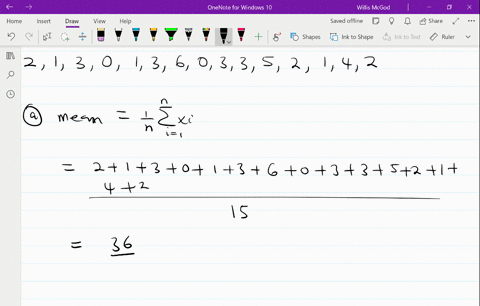 OneNote for Windows 10
Willis McGod
Home Insert Draw View Help Class Notebook
Saved offline Share
Shapes Ink to Shape Ink to Text Ruler
2, 1, 3, 0, 1, 3, 6, 0, 3, 3, 5, 2, 1, 4, 2
a mean = 1/n n∑i=1 xi
= 2+1+3+0+1+3+6+0+3+3+5+2+1+
4+2
15
= 36